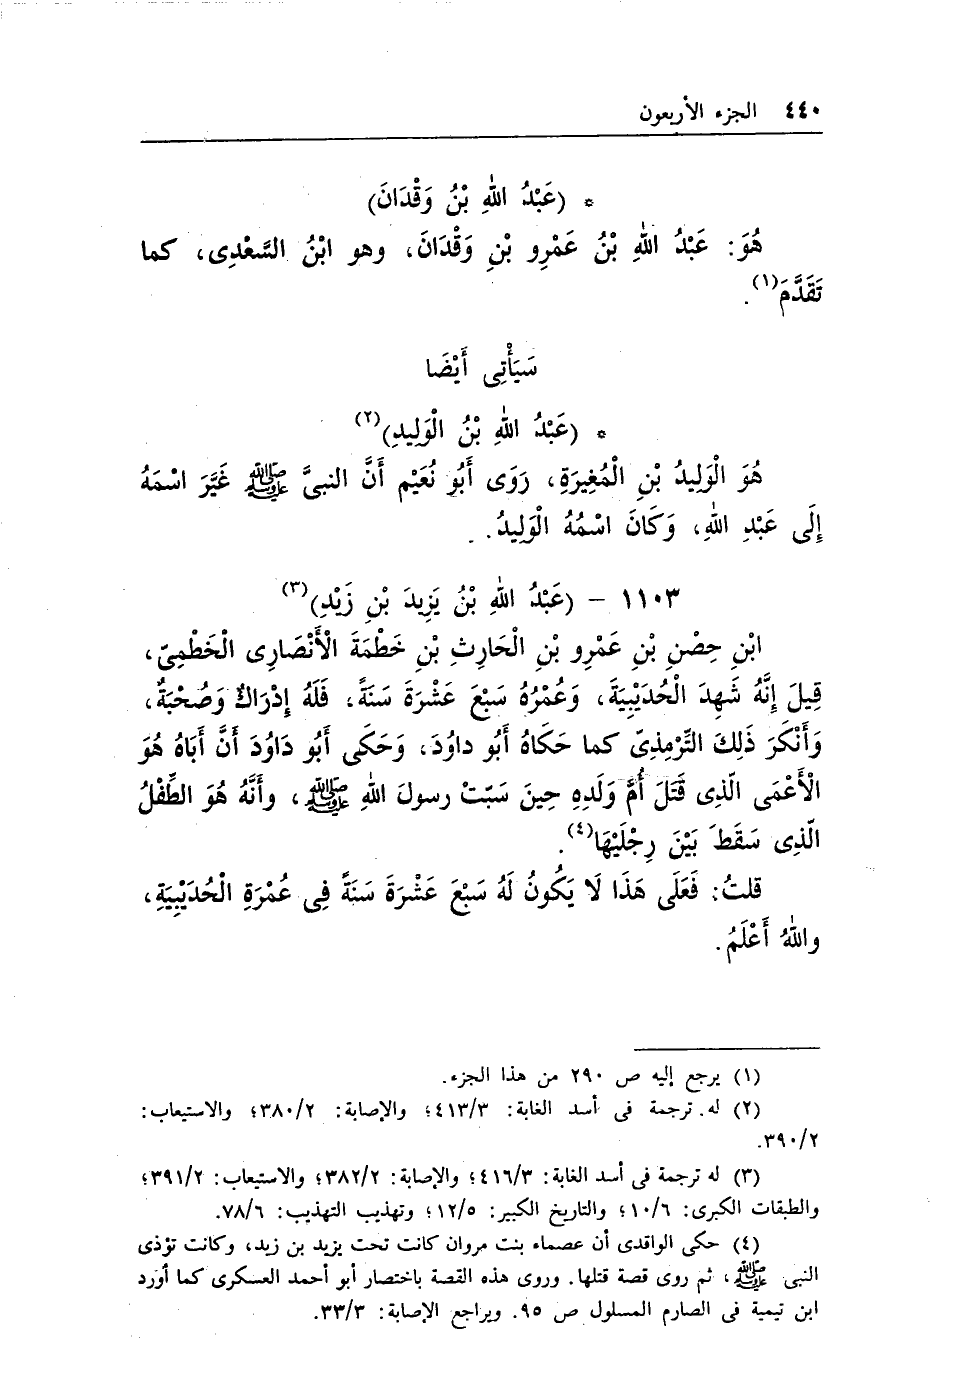 ٤٤٠ الجزء الأربعون
* (عَبْدُ اللهِ بْنُ وَقْدَانَ)
هُوَ: عَبْدُ اللهِ بْنُ عَمْرِو بْنِ وَقْدَانَ، وهو ابْنُ السَّعْدِى، كما
تَقَدَّمَ(١).
سَيَأْتِى أَيْضَا
* (عَبْدُ اللهِ بْنُ الْوَلِيدِ)(٢)
هُوَ الْوَلِيدُ بْنِ الْمُغِيرَةِ، رَوَى أَبُو نُعَيْم أَنَّ النبىَّ ﷺ غَيَّرَ اسْمَهُ
إِلَى عَبْدِ اللهِ، وَكَانَ اسْمُهُ الْوَلِيدُ.
١١٠٣ – (عَبْدُ اللهِ بْنُ يَزِيدَ بْنِ زَيْدِ)(٣)
ابْنِ حِصْنِ بْنِ عَمْرِو بْنِ الْحَارِثِ بْنِ خَطْمَةَ الْأَنْصَارِى الْخَطْمِىّ،
قِيلَ إِنَّهُ شَهِدَ الْحُدَيْبِيَةَ، وَعُمْرُهُ سَبْعَ عَشْرَةَ سَنَةً، فَلَهُ إِدْرَاكٌ وَصُحْبَةٌ،
وَأَنْكَرَ ذَلِكَ التِّرْمِذِىّ كما حَكَاهُ أَبُو داوُد، وَحَكَى أَبُو دَاوُدَ أَنَّ أَبَاهُ هُوَ
الْأَعْمَى الّذِى قَتَلَ أُمَّ وَلَدِهِ حِينَ سَبّتْ رسولَ اللهِ ﷺ، وأَنَّهُ هُوَ الطِّفْلُ
الّذِى سَقَطَ بَيْنَ رِجْلَيْهَا(٤).
قلتُ: فَعَلَى هَذَا لَا يَكُونُ لَهُ سَبْعَ عَشْرَةَ سَنَةً فِى عُمْرَةِ الْحُدَيْبِيَةِ،
واللهُ أَعْلَمُ.
(١) يرجع إليه ص ٢٩٠ من هذا الجزء.
(٢) له ترجمة فى أسد الغابة: ٤١٣/٣؛ والإصابة: ٣٨٠/٢؛ والاستيعاب:
٣٩٠/٢.
(٣) له ترجمة فى أسد الغابة: ٤١٦/٣؛ والإصابة: ٣٨٢/٢؛ والاستيعاب: ٣٩١/٢؛
والطبقات الكبرى: ١٠/٦؛ والتاريخ الكبير: ١٢/٥؛ وتهذيب التهذيب: ٧٨/٦.
(٤) حكى الواقدى أن عصماء بنت مروان كانت تحت يزيد بن زيد، وكانت تؤذى
النبى ﷺ، ثم روى قصة قتلها. وروى هذه القصة باختصار أبو أحمد العسكرى كما أورد
ابن تيمية فى الصارم المسلول ص ٩٥. ويراجع الإصابة: ٣٣/٣.